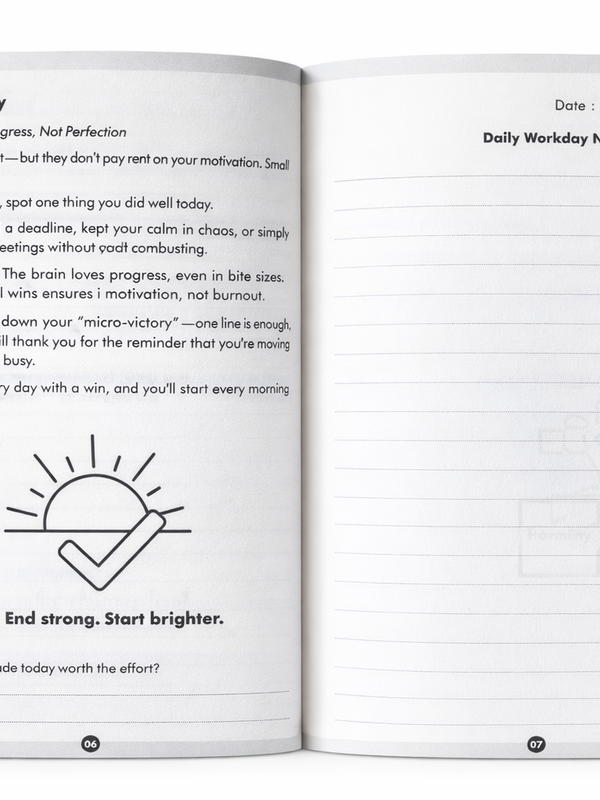 y
gress, Not Perfection
t—but they don't pay rent on your motivation. Small
, spot one thing you did well today.
a deadline, kept your calm in chaos, or simply
eetings without combusting.
The brain loves progress, even in bite sizes.
l wins ensures i motivation, not burnout.
down your “micro-victory”—one line is enough,
ill thank you for the reminder that you're moving
busy.
ry day with a win, and you'll start every morning
End strong. Start brighter.
ade today worth the effort?
06
Date :
Daily Workday N
07